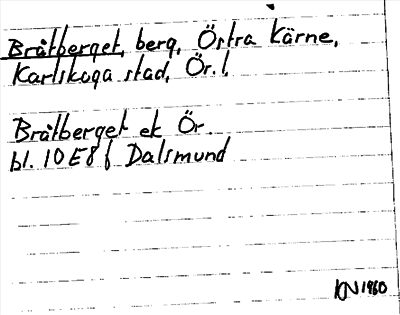 Bråtberget, berg, Östra Kärne,
Karlskoga stad, Ör. l.
Bråtberget ek Ör.
bl. 10E8f Dalsmund
KN 1960